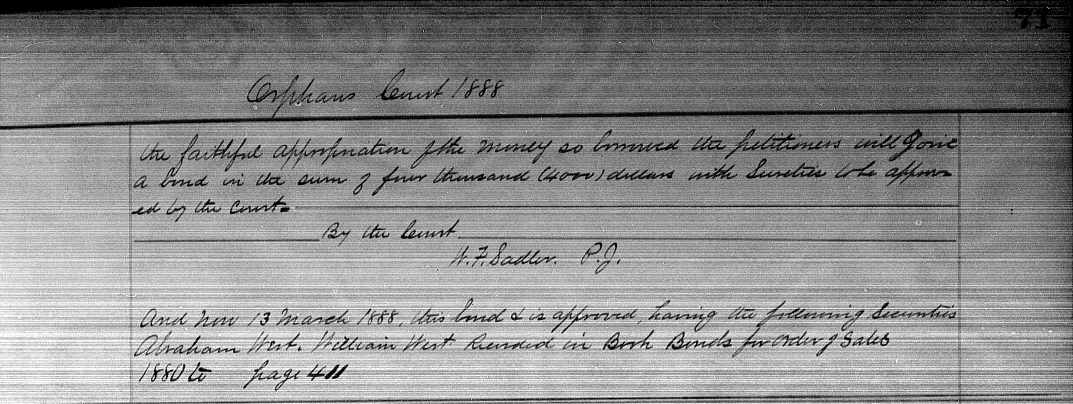 71
Orphans Court 1888
the faithful appropriation of the money so borrowed the petitioners will give
a bond in the sum of four thousand (4000) dollars with Sureties to be approv-
ed by the Court-
By the Court
W. F. Sadler. P. J.
And now 13 March 1888, this bond & is approved, having the following Securities
Abraham West. William West Recorded in Book Bonds for order of Sales
1880 to page 411